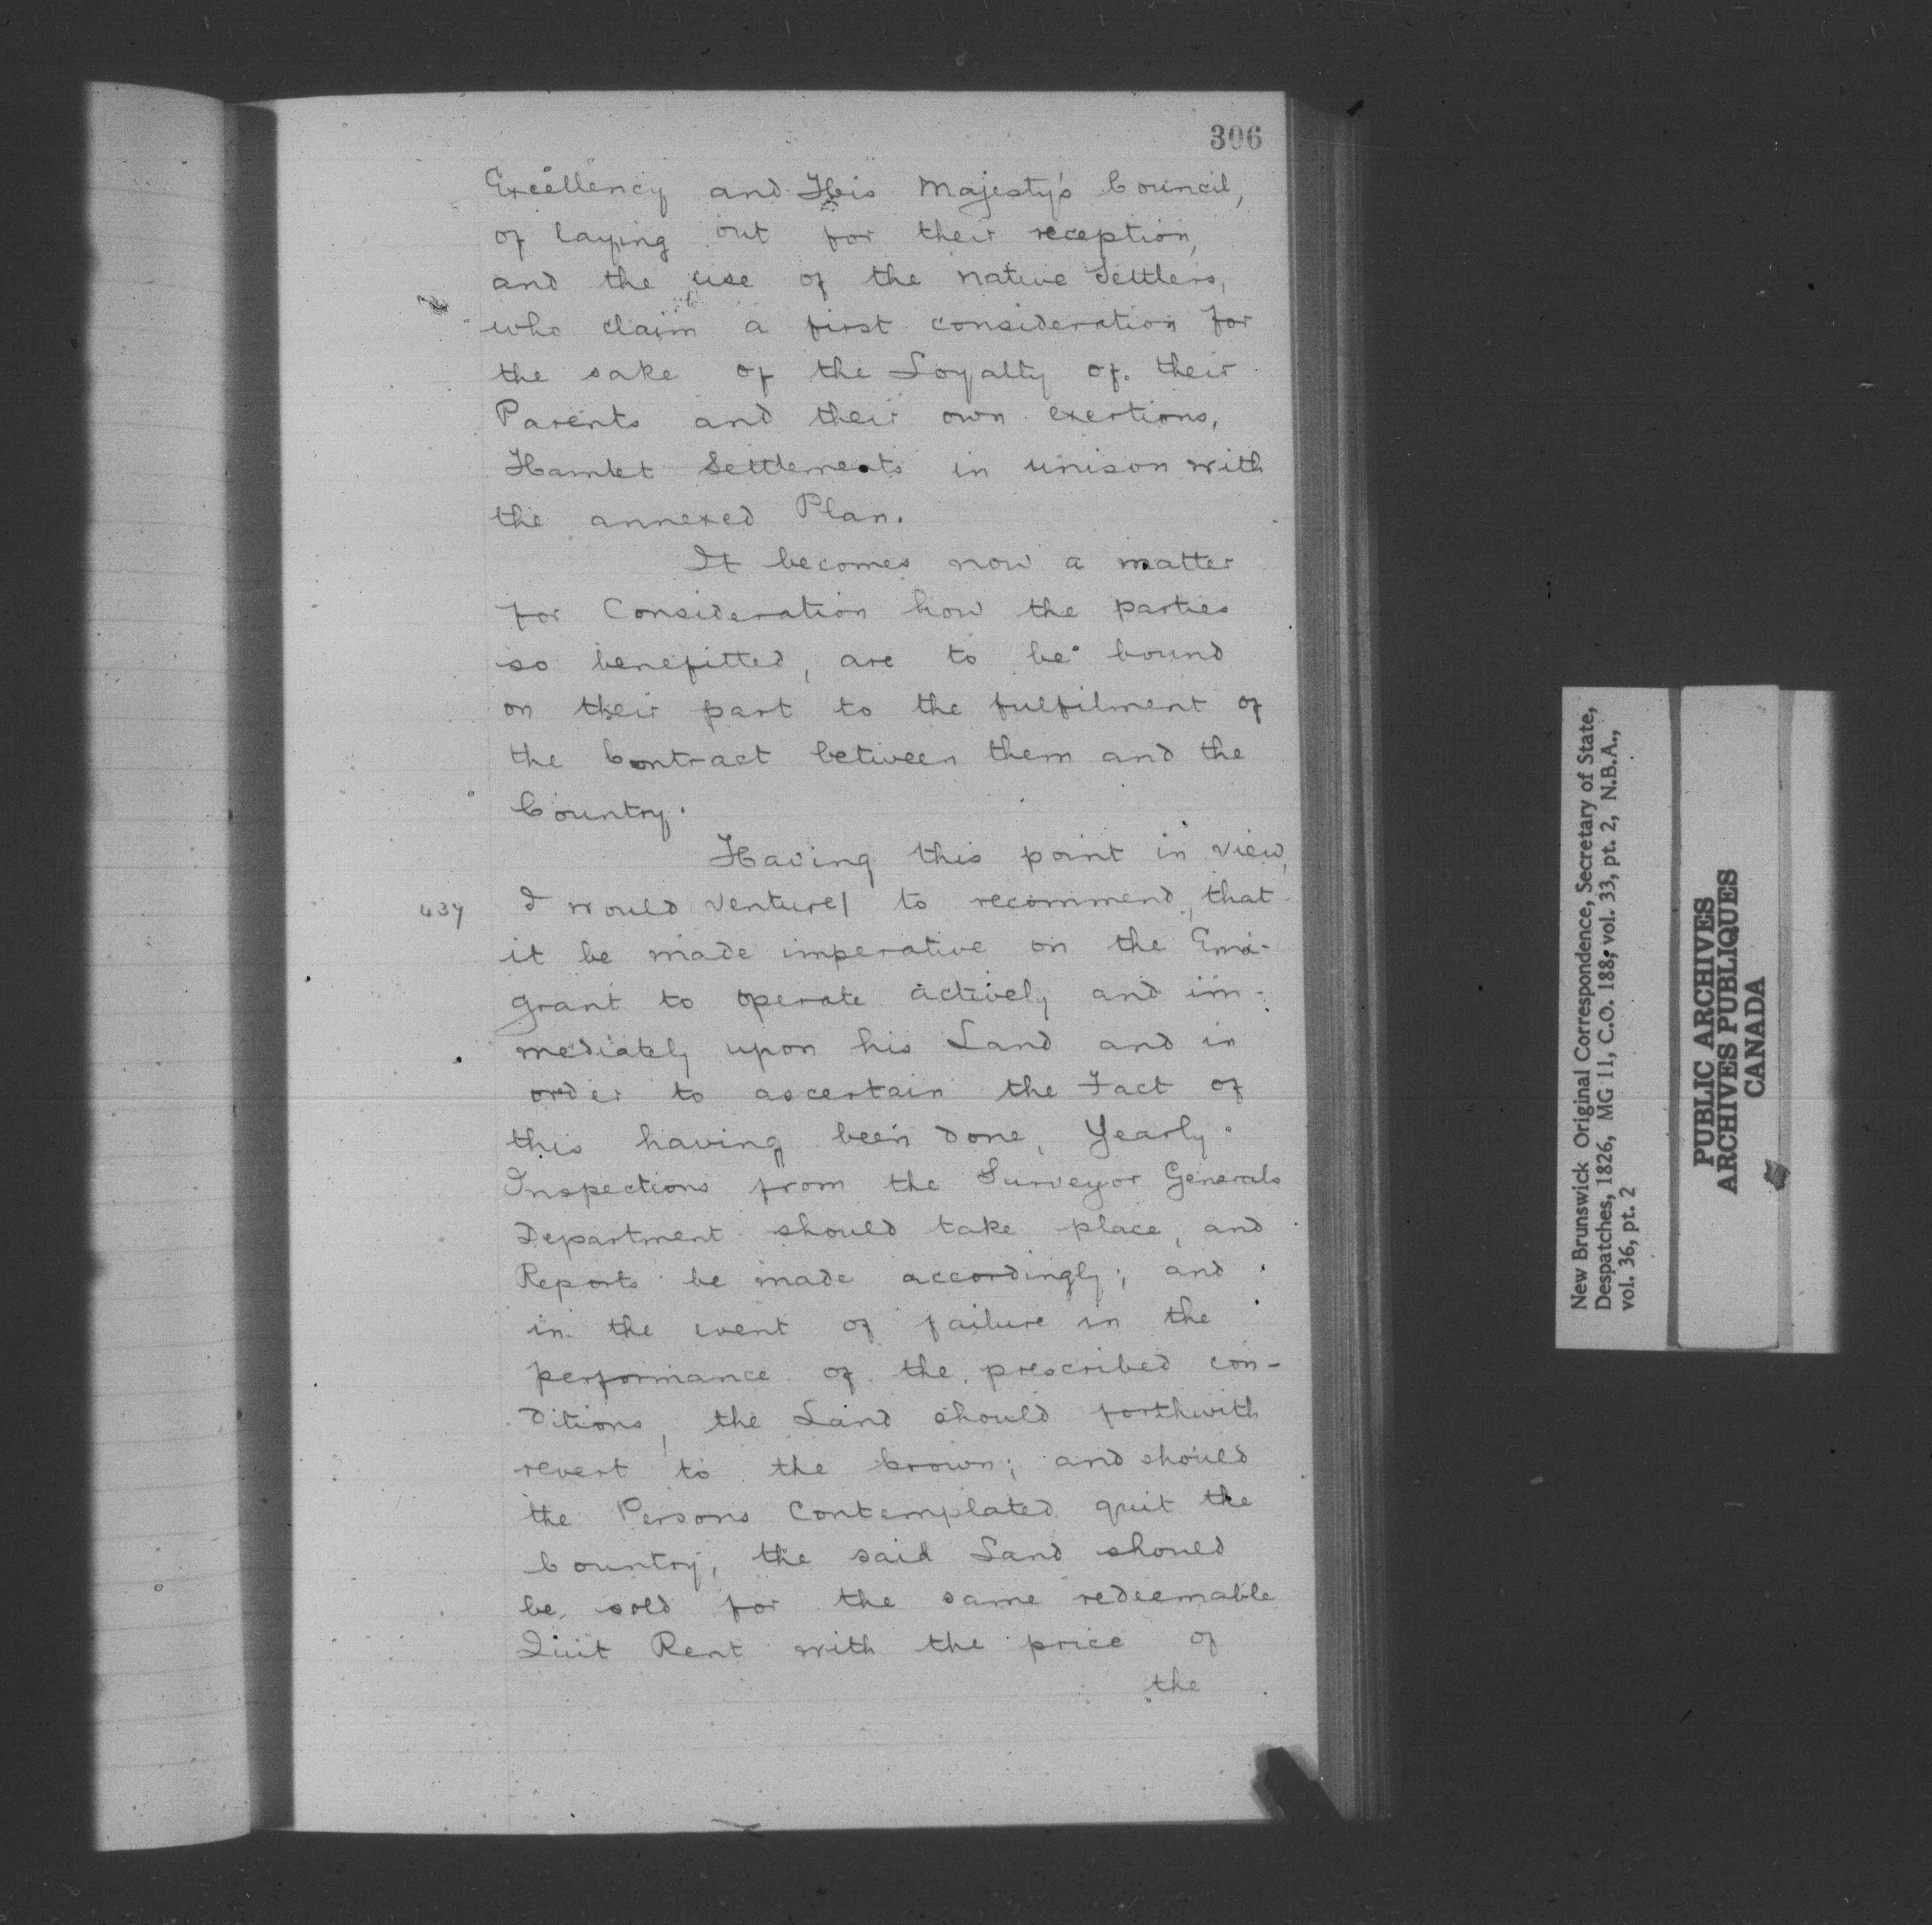 306
Excellency and His Majesty's Council,
of laying out for their reception,
and the use of the native Settlers,
who claim a first consideration for
the sake of the Loyalty of their
Parents and their own exertions,
Hamlet Settlements in unison with
the annexed Plan.
It becomes now a matter
for Consideration how the parties
so benefitted, are to be bound
on their part to the fulfilment of
the Contract between them and the
Country.
Having this point in view,
437 I would venture| to recommend, that
it be made imperative on the Emi-
grant to operate actively and im-
mediately upon his Land and in
order to ascertain the Fact of
this having been done, Yearly
Inspections from the Surveyor Generals
Department should take place, and
Reports be made accordingly; and
in the event of failure in the
performance of the prescribed con-
ditions, the Land should forthwith
revert to the Crown; and should
the Persons Contemplated quit the
Country, the said Land should
be sold for the same redeemable
Quit Rent with the price of
the
New Brunswick Original Correspondence, Secretary of State,
Despatches, 1826, MG 11, C.O. 188, vol. 33, pt. 2, N.B.A.,
vol. 36, pt. 2
PUBLIC ARCHIVES
ARCHIVES PUBLIQUES
CANADA